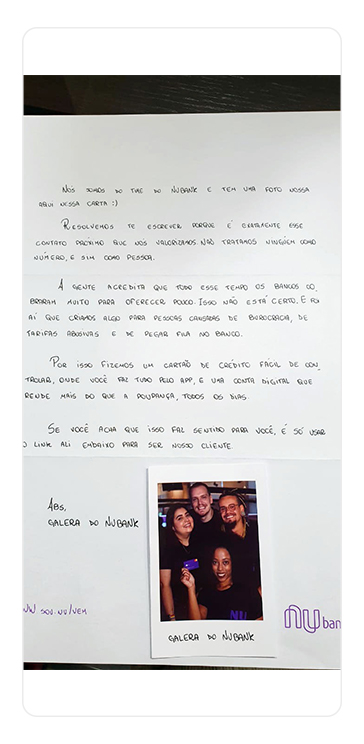 NÓS SOMOS DO TIME DO NUBANK E TEM UMA FOTO NOSSA
AQUI NESSA CARTA :)
RESOLVEMOS TE ESCREVER PORQUE É EXATAMENTE ESSE
CONTATO PRÓXIMO QUE NÓS VALORIZAMOS. NÃO TRATAMOS NINGUÉM COMO
NÚMERO, E SIM COMO PESSOA.
A GENTE ACREDITA QUE TODO ESSE TEMPO OS BANCOS CO_
BRARAM MUITO PARA OFERECER POUCO. ISSO NÃO ESTÁ CERTO. E FOI
AÍ QUE CRIAMOS ALGO PARA PESSOAS CANSADAS DE BUROCRACIA, DE
TARIFAS ABUSIVAS E DE PEGAR FILA NO BANCO.
POR ISSO FIZEMOS UM CARTÃO DE CRÉDITO FÁCIL DE CON_
TROLAR, ONDE VOCÊ FAZ TUDO PELO APP, E UMA CONTA DIGITAL QUE
RENDE MAIS DO QUE A POUPANÇA, TODOS OS DIAS.
SE VOCÊ ACHA QUE ISSO FAZ SENTIDO PARA VOCÊ, É SÓ USAR
O LINK ALI EMBAIXO PARA SER NOSSO CLIENTE.
ABS,
GALERA DO NUBANK
NU
GALERA DO NUBANK
SOU.NU/VEM
nu ban